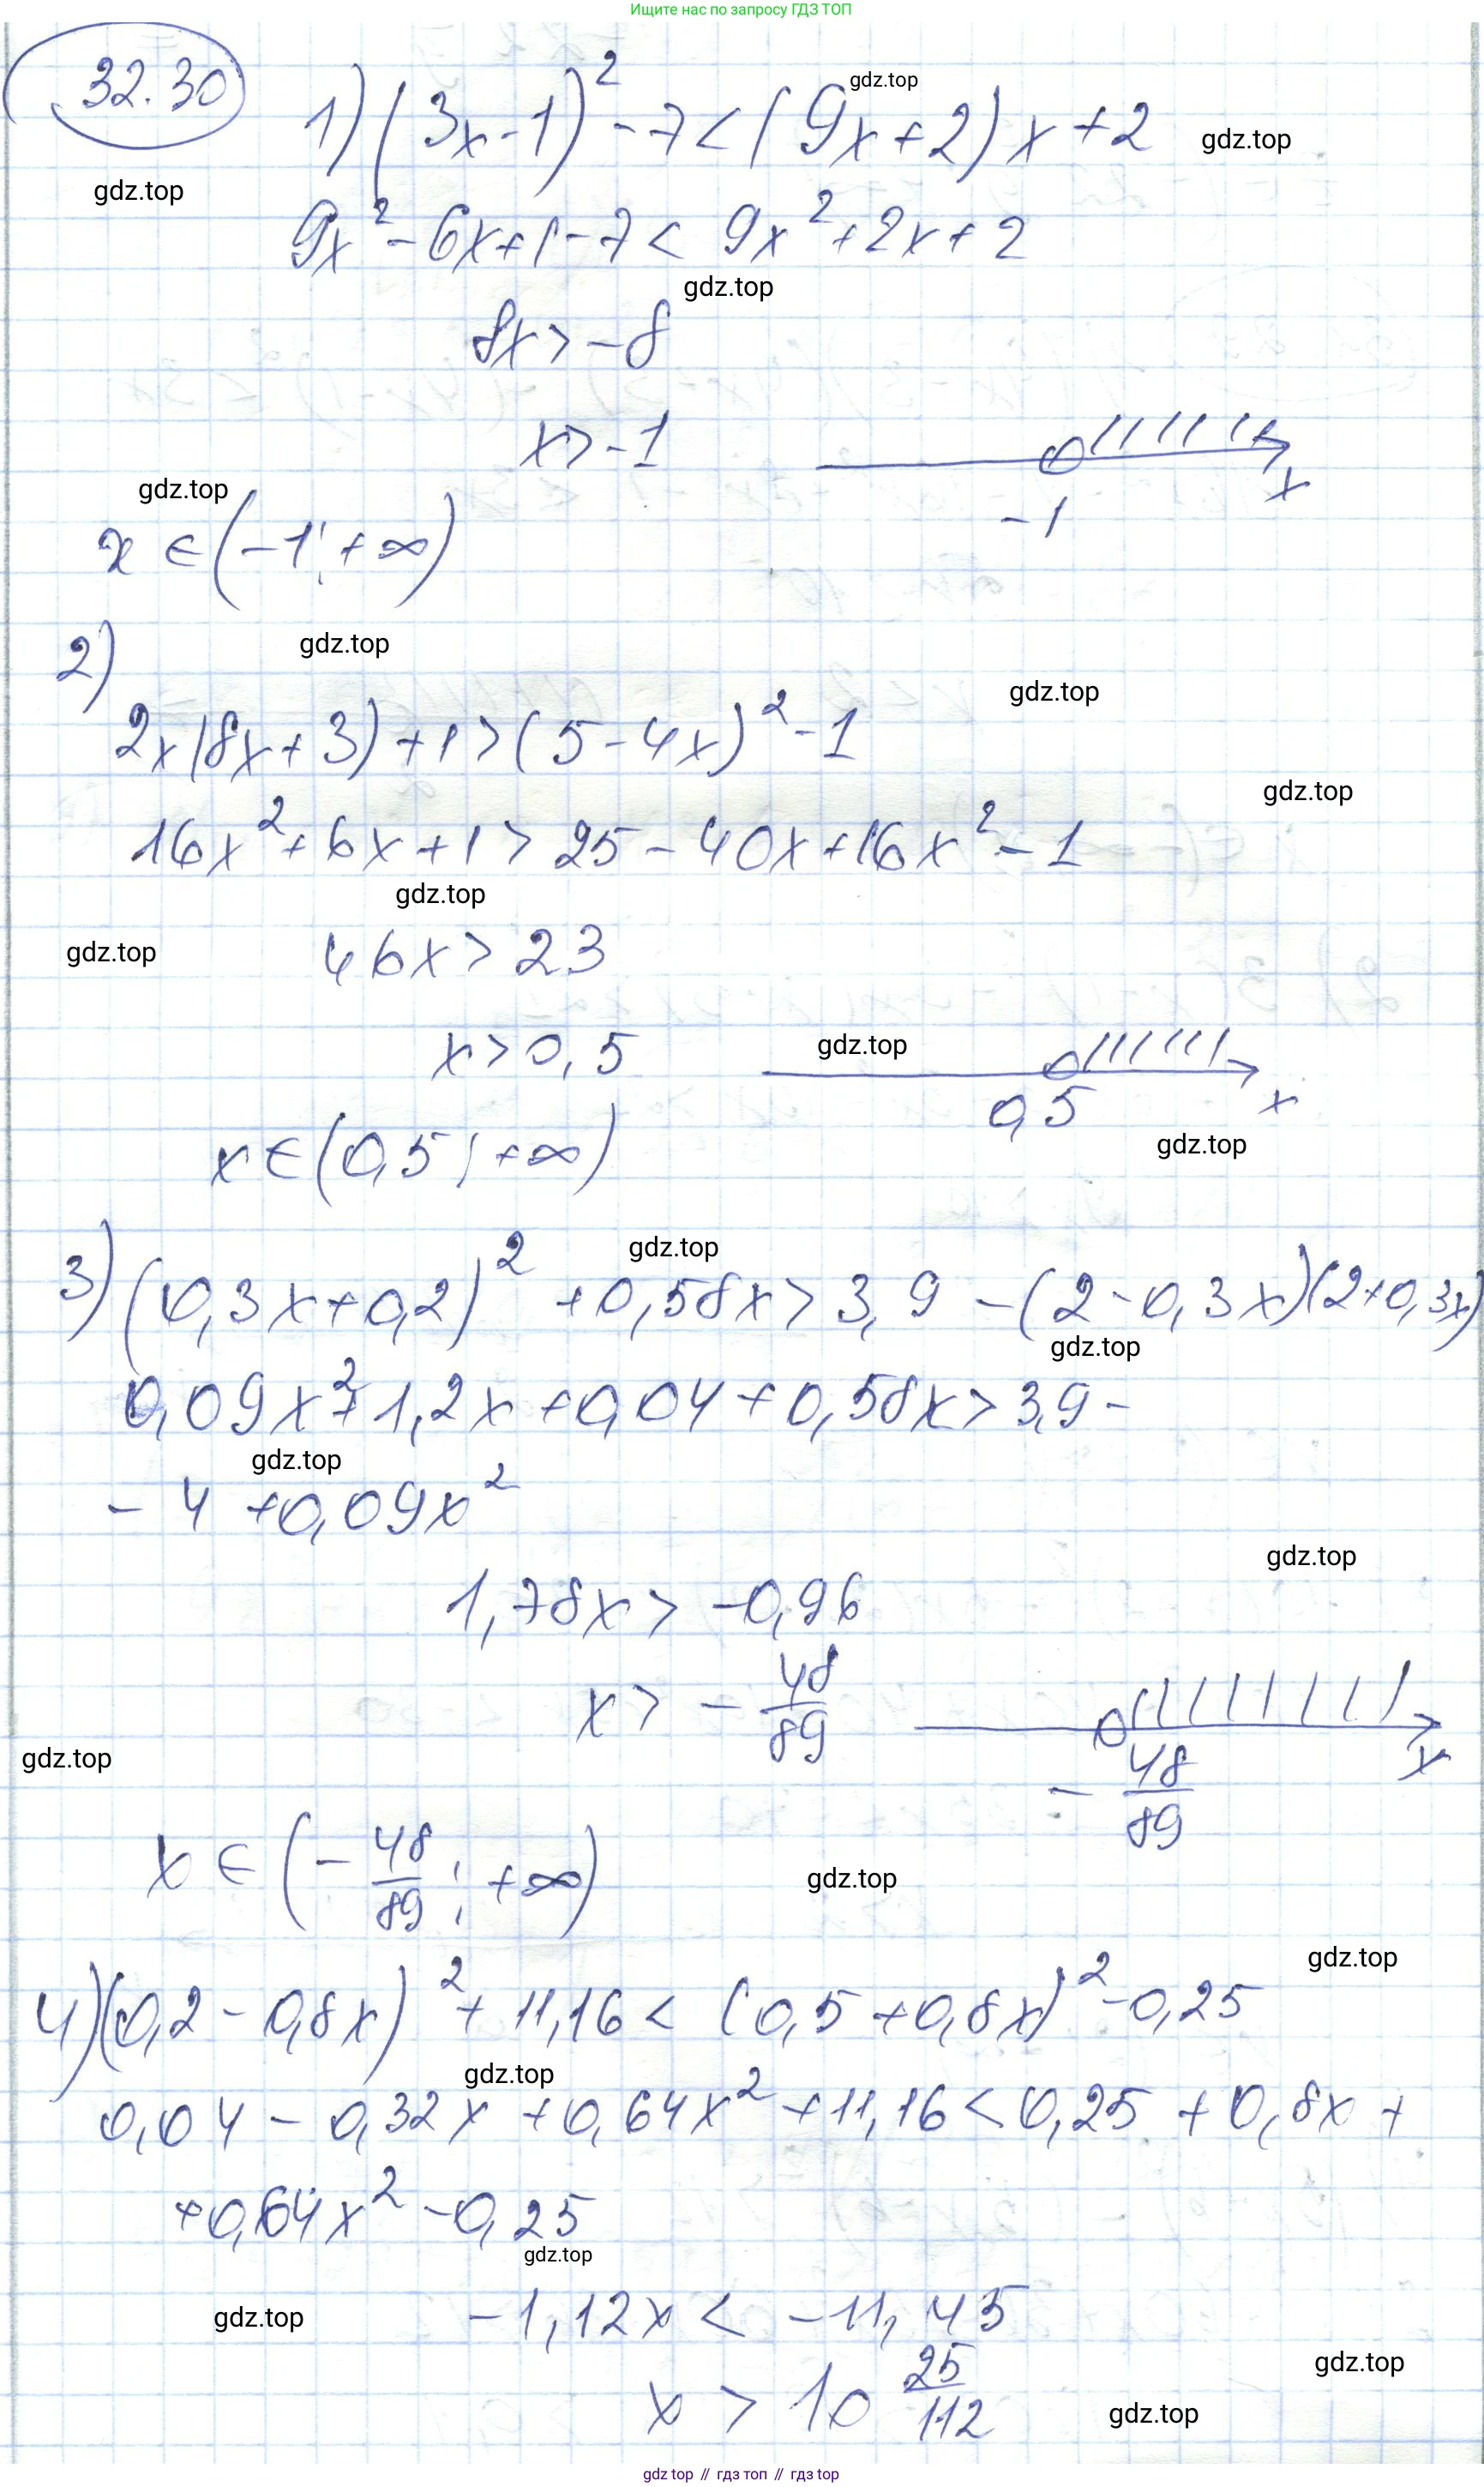 Ищите нас по запросу ГДЗ ТОП
32.30
1) (3x-1)² - 7 < (9x+2)x+2
gdz.top
gdz.top
gdz.top
9x² - 6x+1-7 < 9x²+2x+2
gdz.top
8x > -8
x > -1
x
-1
gdz.top
x ∈ (-1; +∞)
2)
gdz.top
gdz.top
2x(8x+3)+1 > (5-4x)² - 1
gdz.top
16x² + 6x + 1 > 25 - 40x + 16x² - 1
gdz.top
gdz.top
46x > 23
x > 0,5
gdz.top
0,5
x
gdz.top
x ∈ (0,5; +∞)
3) (0,3x+0,2)² + 0,58x > 3,9 - (2-0,3x)(2+0,3x)
gdz.top
gdz.top
0,09x² + 1,2x + 0,04 + 0,58x > 3,9 -
gdz.top
- 4 + 0,09x²
gdz.top
1,78x > -0,96
x > - 48/89
x
gdz.top
- 48/89
x ∈ (- 48/89; +∞)
gdz.top
gdz.top
4) (0,2 - 0,8x)² + 11,16 < (0,5+0,8x)² - 0,25
gdz.top
0,04 - 0,32x + 0,64x² + 11,16 < 0,25 + 0,8x +
+0,64x² - 0,25
gdz.top
gdz.top
-1,12x < -11,45
gdz.top
x > 10 25/112
gdz.top
gdz top // гдз топ // гдз top